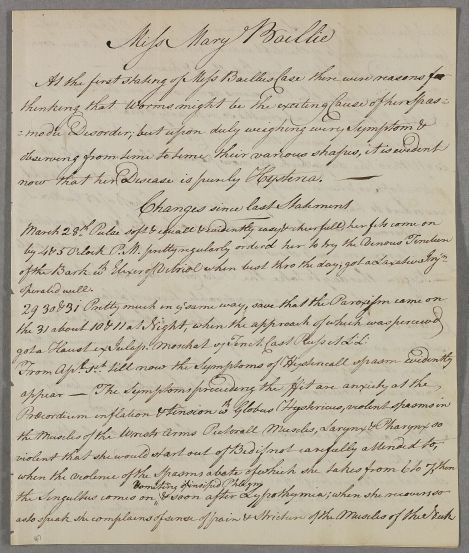 Miss Mary Baillie
At the first stating of Miss Baillies Case there were reasons for
thinking that Worms might be the exciting Cause of her Spas=
=modic Disorder; but upon duly weighing every Symptom &
observing from time to time their various shapes, it is evident
now that her Disease is purely Hysteria.
Changes since last Statement
March 28th Pulse soft & equall & evidently easy (& cherfull) her fits come on
by 4 & 5 oClock P.M. pretty regularly orderd her to try the Vinous Tincture
of the Bark wt Elixer of Vitriol when best thro the day; got a Laxative
operated well.
29 30 & 31 Pretty much in ye same way, save that the Paroxism came on
the 31 about 10 & 11 at Night when the approach of which was perceived
got a Haust ex Julap. Moschat et Tinct. Cast.
From Aprl. 1st. till now the Symptoms of Hystericall spasm evidently
appear — The Symptoms preceeding the Fit are anxiety at the
Præcordium inflation & tension wt Globus Hystericus, violent spasms in
the Muscles of the Wrists Arms Pectorall Muscles, Larynx & Pharynx so
violent that she would start out of Bed if not carefully attended to,
when the violence of the Spasms abate of which she takes from 6 to 7, then
Vomiting of insipid Phlegm
the Singultus comes on, & soon after Lypothymia; when she recovers so
as to speak she complains of sense of pain & Stricture of the Muscles of the Neck